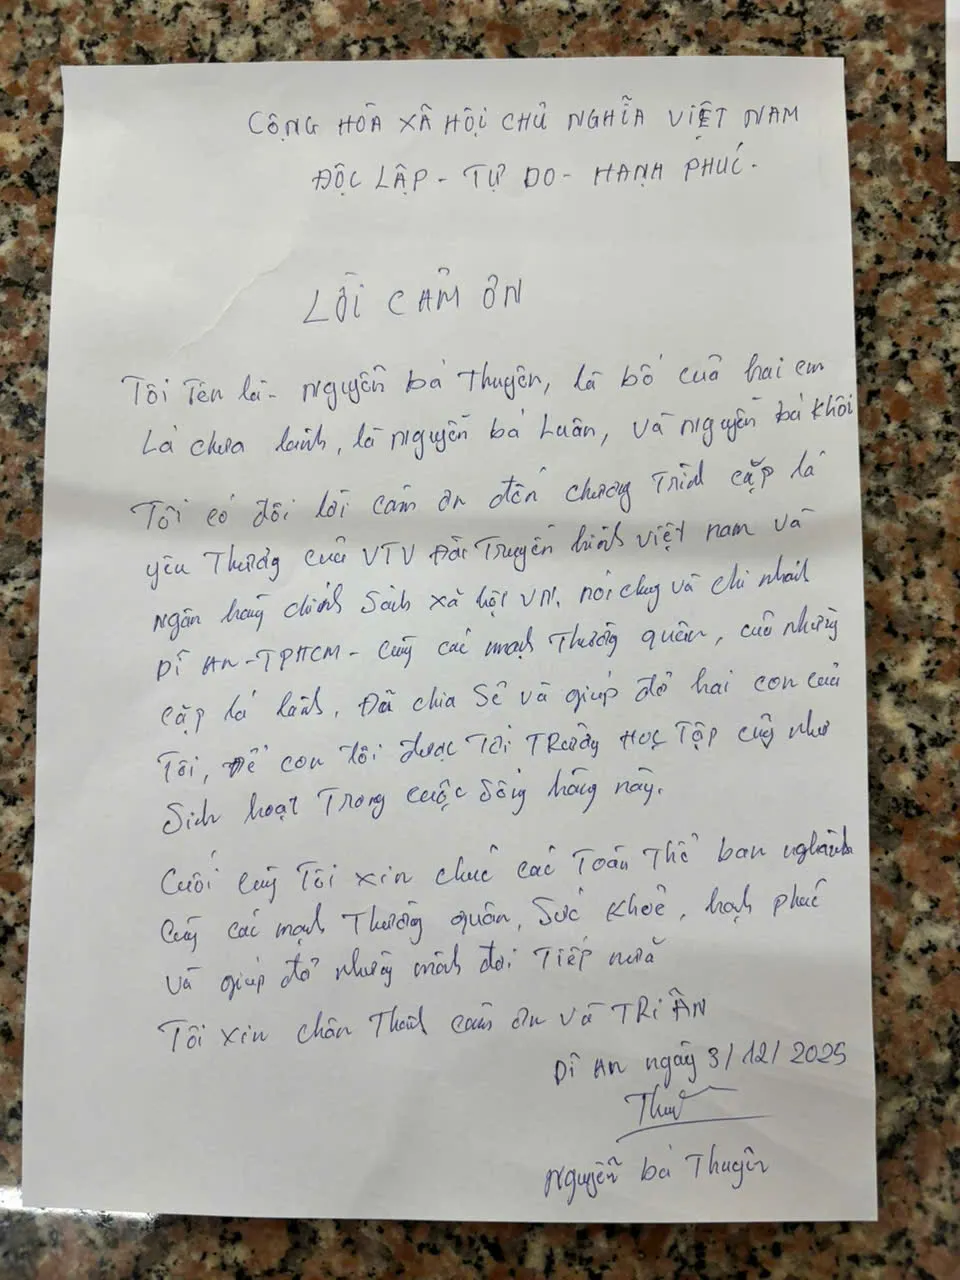 CỘNG HÒA XÃ HỘI CHỦ NGHĨA VIỆT NAM
ĐỘC LẬP - TỰ DO - HẠNH PHÚC.
LỜI CẢM ƠN
Tôi Tên là - Nguyễn bá Thuyên, là bố của hai em
Lá chưa lành, là Nguyễn bá Luân, và Nguyễn bá Khôi
Tôi có đôi lời cảm ơn đến chương Trình cặp lá
yêu Thương của VTV Đài Truyền hình việt nam và
ngân hàng chính Sách xã hội VN. nói chung và chi nhánh
Dĩ AN - TPHCM - cùng các mạnh Thường quân, của những
cặp lá lành. Đã chia Sẻ và giúp đỡ hai con của
Tôi, Để con tôi được Tới TRường HỌC TẬP cũng như
Sinh hoạt Trong cuộc Sống hằng này.
Cuối cùng Tôi xin chúc các Toàn Thể ban nghành
Cùng các mạnh Thường quân, Sức Khỏe, hạnh phúc
và giúp đỡ những mảnh đời Tiếp nữa
Tôi xin chân Thành cảm ơn và TRi ÂN
Dĩ An ngày 3/12/2025
Nguyễn bá Thuyên